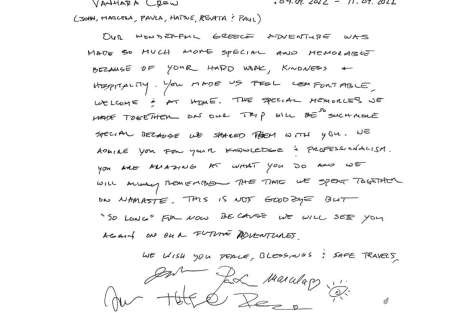 VANHARA CREW 04.09.2022 - 11.09.2022
(JOHN, MARIJETA, PAVLA, HATICE, RENATA & PAUL)
OUR WONDERFUL GREECE ADVENTURE WAS
MADE SO MUCH MORE SPECIAL AND MEMORABLE
BECAUSE OF YOUR HARD WORK, KINDNESS &
HOSPITALITY. YOU MADE US FEEL COMFORTABLE,
WELCOME & AT HOME. THE SPECIAL MEMORIES WE
MADE TOGETHER ON OUR TRIP WILL BE SO SUCH MORE
SPECIAL BECAUSE WE SHARED THEM WITH YOU. WE
ADMIRE YOU FOR YOUR KNOWLEDGE & PROFESSIONALISM.
YOU ARE AMAZING AT WHAT YOU DO AND WE
WILL ALWAYS REMEMBER THE TIME WE SPENT TOGETHER
ON NAMASTE. THIS IS NOT GOODBYE BUT
"SO LONG" FOR NOW BECAUSE WE WILL SEE YOU
AGAIN ON OUR FUTURE ADVENTURES.
WE WISH YOU PEACE, BLESSINGS & SAFE TRAVELS,